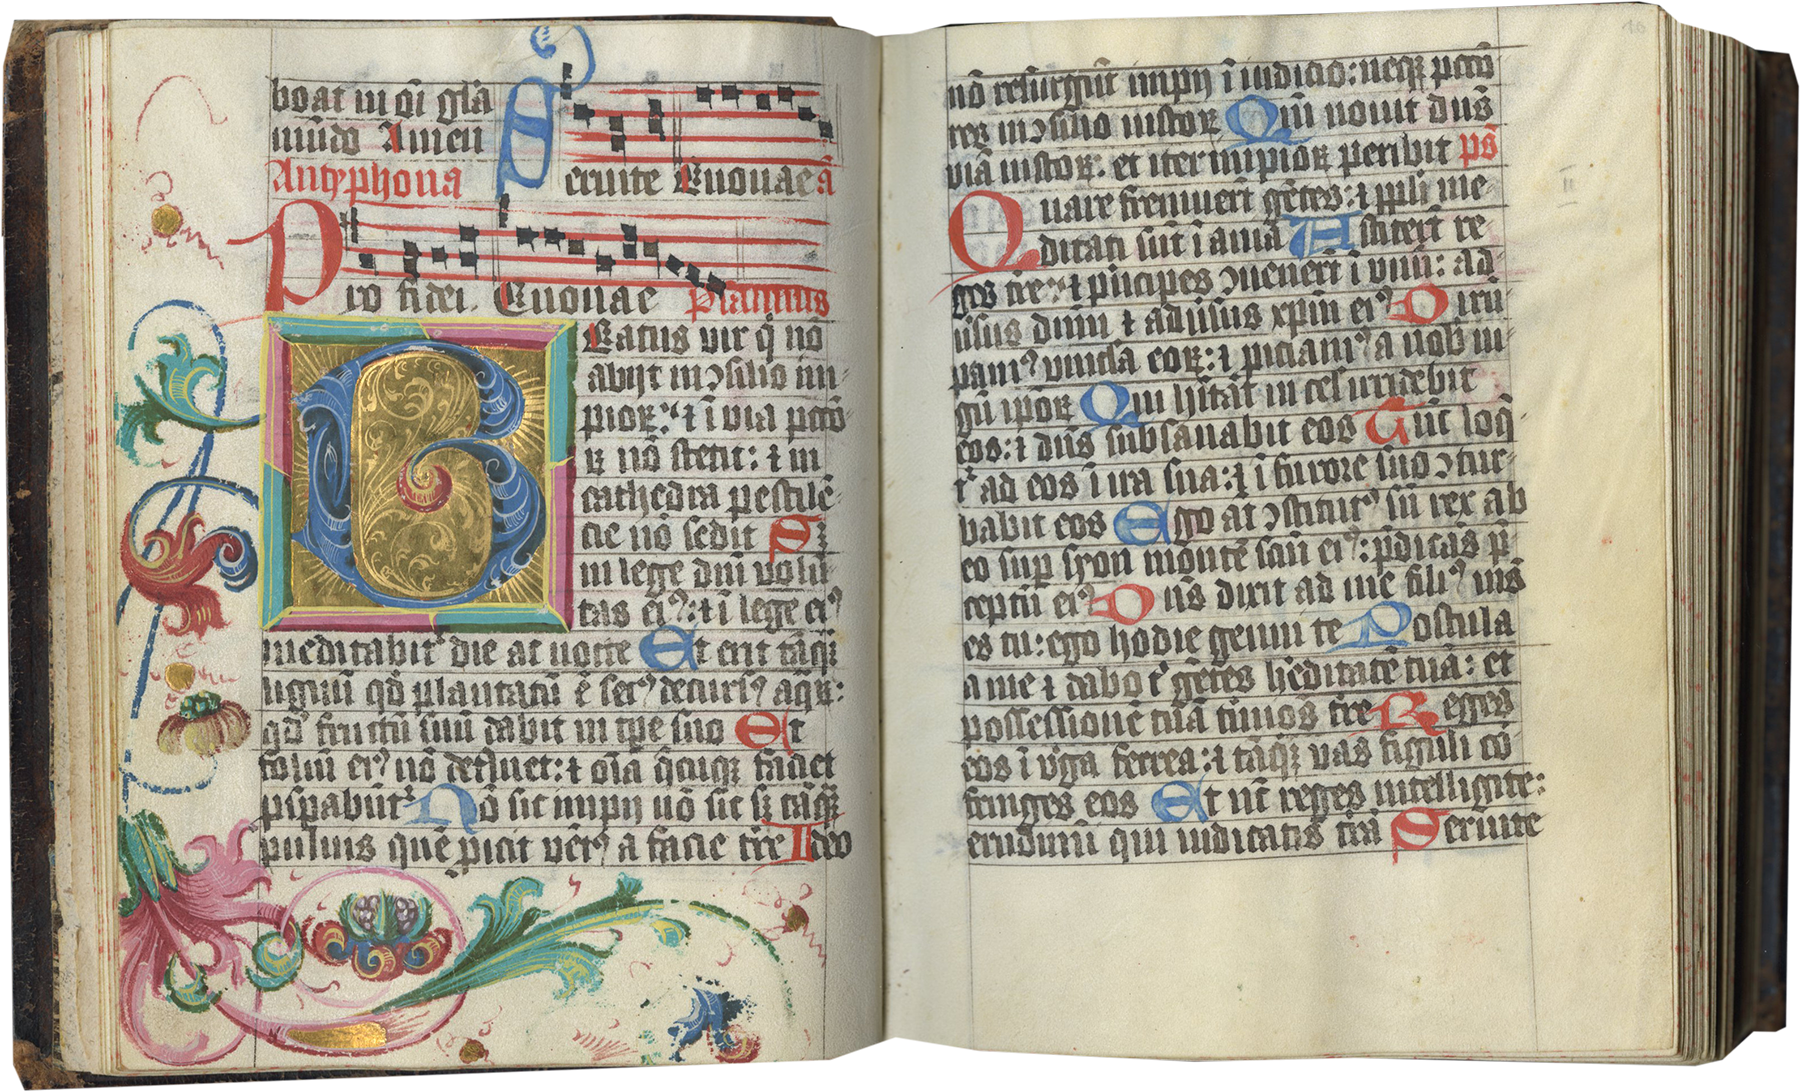 boat in oī glā
mūdo Amen
Antyphona
Seruite Euouae ā
Pro fidei Euouae Psalmus
Beatus vir q̄ nō
abijt in ↄsilio im-
pioꝝ: ⁊ ī via pctō
ꝝ nō stetit: ⁊ in
cathedra pestilē-
cie nō sedit Sꝫ
in lege dn̄i volū
tas eiꝰ: ⁊ ī lege eiꝰ
meditabit᷑ die ac nocte Et erit tāqꝫ
lignū qd̄ plantatū ē secꝰ decursꝰ aqꝝ:
qd̄ fructū suū dabit in tpe suo Et
foliū eiꝰ nō defluet: ⁊ oīa q̄cūqꝫ faciet
pspabūt᷑ Nō sic impij nō sic sꝫ tāqꝫ
puluis quē picit vētꝰ a facie tr̄e Ideo
nō resurgūt impij ī iudicio: neqꝫ pctō
res in ↄsilio iustoꝝ Qm̄ nouit dn̄s
viā iustoꝝ. et iter impioꝝ peribit ps̄
Quare fremuerūt gētes: ⁊ ppl̄i me-
ditati sūt ī ania Astiterūt re
ges tr̄e: ⁊ pͥncipes ↄuenerūt ī vnū: ad-
uſus dn̄m ⁊ aduſus xpm̄ eiꝰ Dirū
pamꝰ vincla eoꝝ: ⁊ piciamꝰ a nob iu
gū ipoꝝ Qui hītat in cel irridebit
eos: ⁊ dn̄s subsanabit eos Tūc loq̄
t᷑ ad eos ī ira sua: ⁊ ī furore suo ↄtur-
babit eos Ego at ↄstitutꝰ sū rex ab
eo sup syon montē scm̄ eiꝰ: p̄dicās p̄
ceptū eiꝰ Dn̄s dixit ad me filiꝰ mꝰ
es tu: ego hodie genui te Postula
a me ⁊ dabo t᷑ gētes hēditatē tuā: et
possessionē tuā tīnos tr̄e Reges
eos ī v̄ga ferrea: ⁊ tāqꝫ vas figuli cō
fringes eos Et nūc reges intelligite:
erudimī qui iudicatis trā Seruite